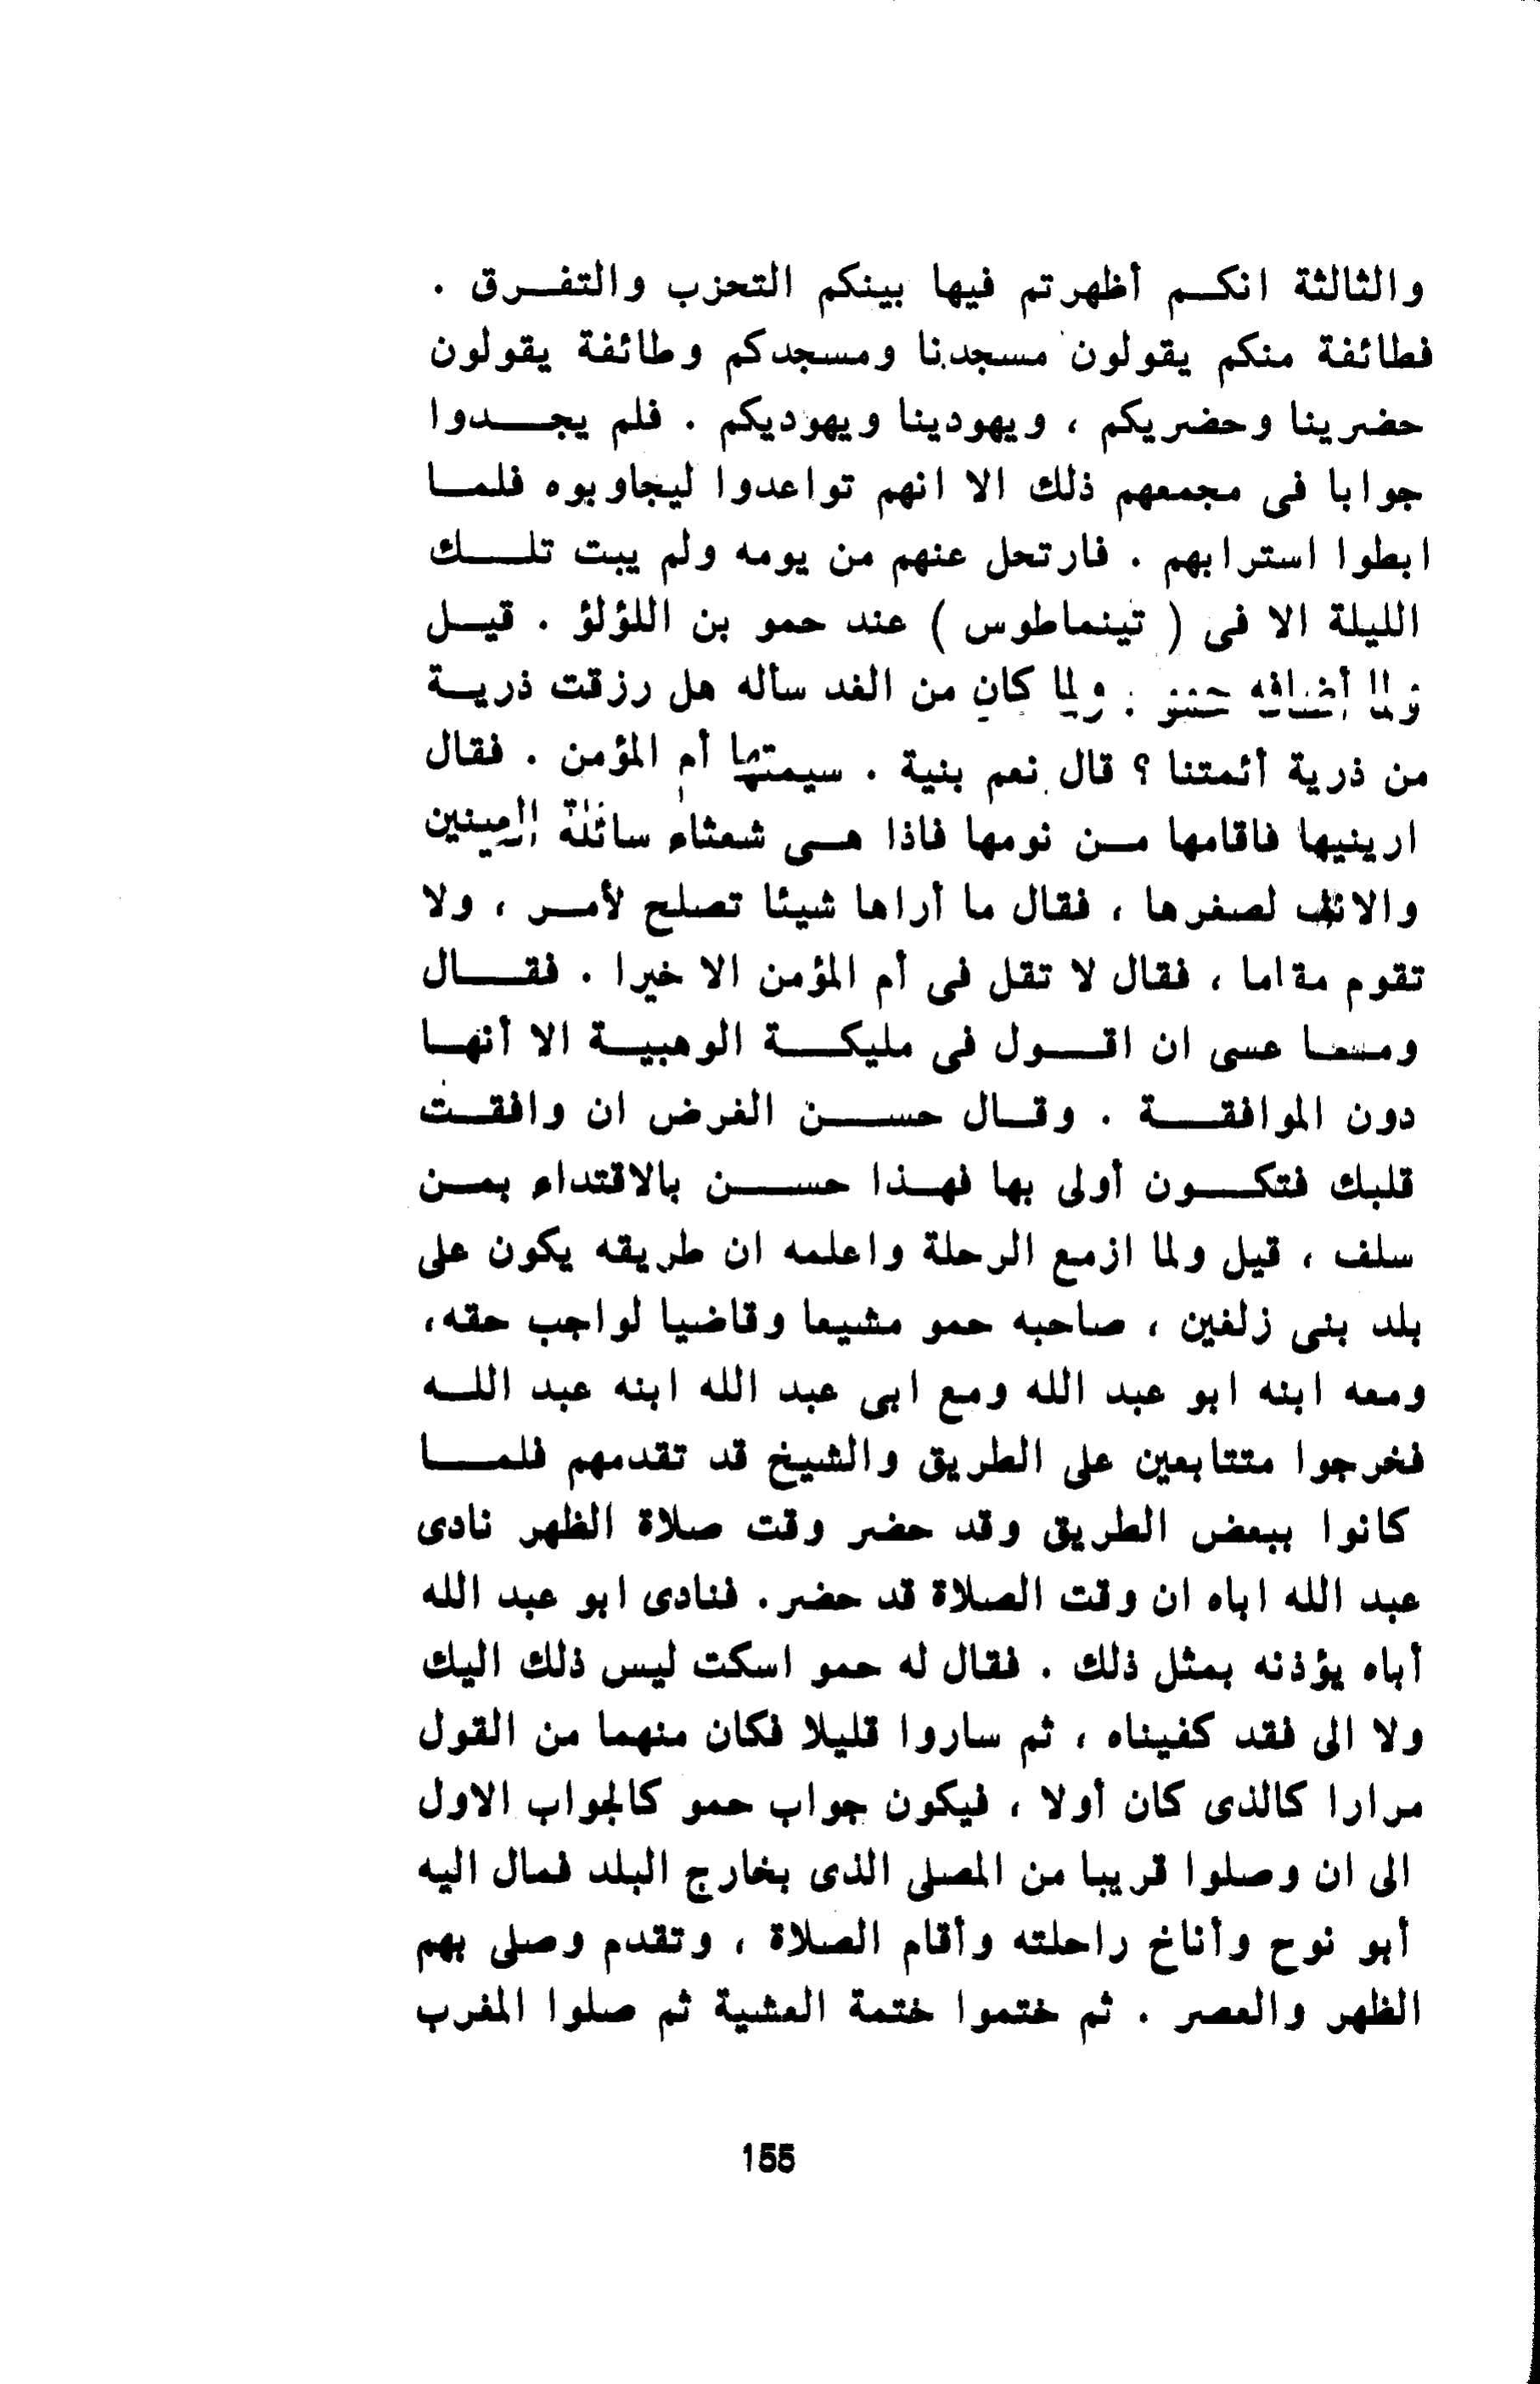 والثالثة انكم أظهرتم فيها بينكم التحزب والتفرق .
فطائفة منكم يقولون مسجدنا ومسجدكم وطائفة يقولون
حضرينا وحضريكم ، ويهودينا ويهوديكم . فلم يجدوا
جوابا فى مجمعهم ذلك الا انهم تواعدوا ليجاوبوه فلما
ابطوا استرابهم . فارتحل عنهم من يومه ولم يبت تلك
الليلة الا فى ( تينماطوس ) عند حمو بن اللؤلؤ . قيل
ولما أضافه حمو . ولما كان من الغد سأله هل رزقت ذرية
من ذرية أئمتنا ؟ قال نعم بنية . سيمتها أم المؤمن . فقال
ارينيها فاقامها من نومها فاذا هى شعثاء سائلة العينين
والانف لصغرها ، فقال ما أراها شيئا تصلح لأمر ، ولا
تقوم مقاما ، فقال لا تقل فى أم المؤمن الا خيرا . فقال
وما عسى ان اقول فى مليكة الوهبية الا أنها
دون الموافقة . وقال حسن الغرض ان وافقت
قلبك فتكون أولى بها فهذا حسن بالاقتداء بمن
سلف ، قيل ولما ازمع الرحلة واعلمه ان طريقه يكون على
بلد بنى زلغين ، صاحبه حمو مشيعا وقاضيا لواجب حقه،
ومعه ابنه ابو عبد الله ومع ابى عبد الله ابنه عبد الله
فخرجوا متتابعين على الطريق والشيخ قد تقدمهم فلما
كانوا ببعض الطريق وقد حضر وقت صلاة الظهر نادى
عبد الله اباه ان وقت الصلاة قد حضر. فنادى ابو عبد الله
أباه يؤذنه بمثل ذلك . فقال له حمو اسكت ليس ذلك اليك
ولا الى فقد كفيناه ، ثم ساروا قليلا فكان منهما من القول
مرارا كالذى كان أولا ، فيكون جواب حمو كالجواب الاول
الى ان وصلوا قريبا من المصلى الذى بخارج البلد فمال اليه
أبو نوح وأناخ راحلته وأقام الصلاة ، وتقدم وصلى بهم
الظهر والعصر . ثم ختموا ختمة العشية ثم صلوا المغرب
155